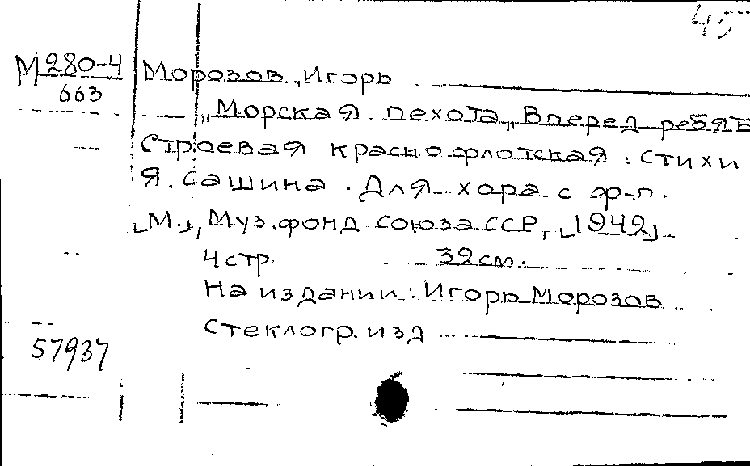 45
М280-4 Морозов, Игорь
663
„Морская пехота„ Вперед ребят
Строевая краснофлотская: стихи
Я. Сашина. Для хора с ф-п.
[М.], Муз. фонд союза ССР, [1942]
4 стр. 32 см.
На издании: Игорь Морозов
Стеклогр. изд
57937